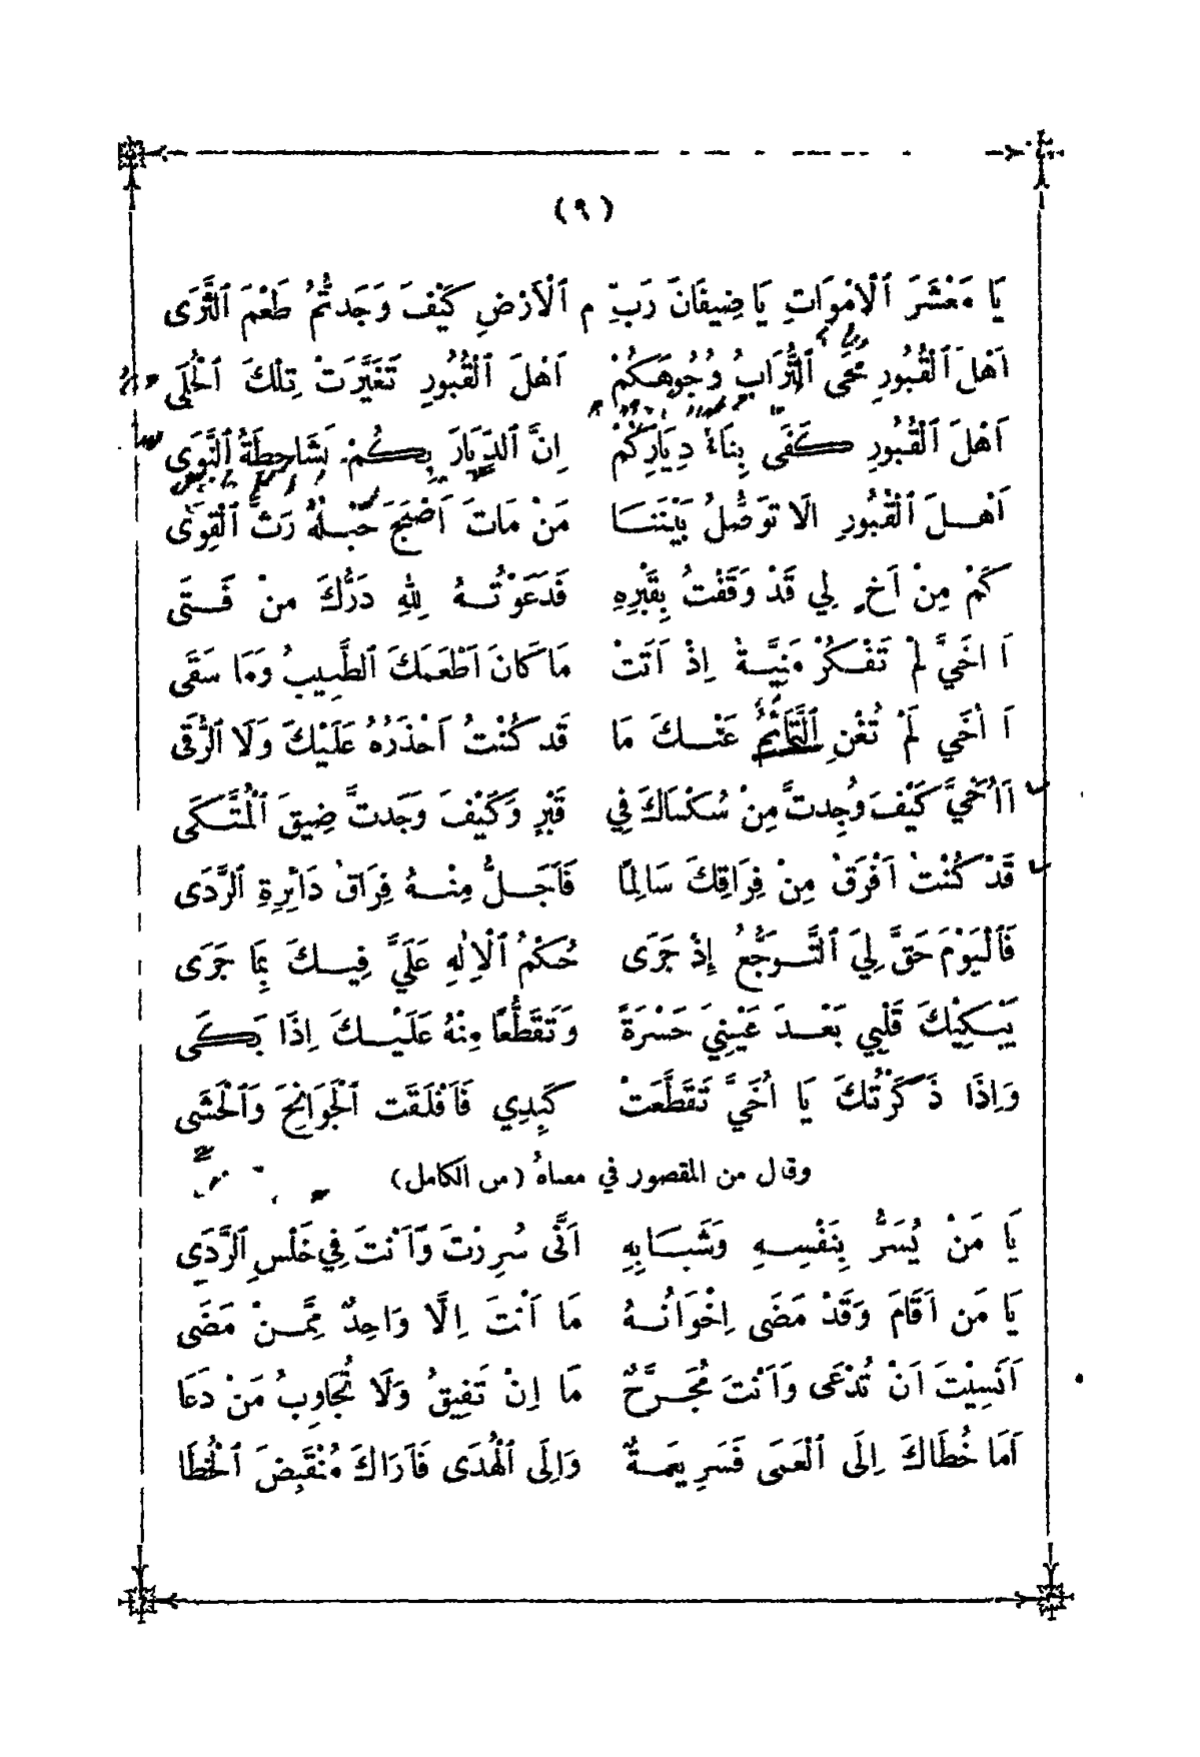 (٩)
يَا مَعْشَرَ ٱلْأَمْوَاتِ يَا ضِيفَانَ رَبِّ م ٱلْأَرْضِ كَيْفَ وَجَدتُّمُ طَعْمَ ٱلثَّرَى
أَهْلَ ٱلْقُبُورِ مَحَى ٱلتُّرَابُ وُجُوهَكُمْ أَهْلَ ٱلْقُبُورِ تَغَيَّرَتْ تِلْكَ ٱلْحُلَى
أَهْلَ ٱلْقُبُورِ كَفَى بِنَاءُ دِيَارِكُمْ إِنَّ ٱلدِّيَارَ بِكُمْ لَشَاحِطَةُ ٱلنَّوَى
أَهْلَ ٱلْقُبُورِ ٱلَا تَوَصُّلُ بَيْنَنَا مَنْ مَاتَ أَصْبَحَ حَبْلُهُ رَثَّ ٱلْقِوَى
كَمْ مِنْ أَخٍ لِي قَدْ وَقَفْتُ بِقَبْرِهِ فَدَعَوْتُهُ لِلهِ دَرُّكَ مِنْ فَتَى
أَأُخَيَّ لَمْ تَفْكُكْ مَنِيَّةٌ إِذْ أَتَتْ مَا كَانَ أَطْعَمَكَ ٱلطَّبِيبُ وَمَا سَقَى
أَأُخَي لَمْ تُغْنِ ٱلتَّمَائِمُ عَنْكَ مَا قَد كُنْتُ أَحْذَرُهُ عَلَيْكَ وَلَا ٱلرُّقَى
أَأُخَيَّ كَيْفَ وُجِدتَّ مِنْ سُكْنَاكَ فِي قَبْرٍ وَكَيْفَ وَجَدتَّ ضِيقَ ٱلْمُتَّكَى
قَدْ كُنْتُ أَفْرَقُ مِنْ فِرَاقِكَ سَالِمًا فَأَجَلُّ مِنْهُ فِرَاقُ دَائِرَةِ ٱلرَّدَى
فَٱلْيَوْمَ حَقَّ لِيَ ٱلتَّوَجُّعُ إِذْ جَرَى حُكْمُ ٱلْإِلٰهِ عَلَيَّ فِيكَ بِمَا جَرَى
يَبْكِيْكَ قَلْبِي بَعْدَ عَيْنِيَ حَسْرَةً وَتَقَطُّعًا مِنْهُ عَلَيْكَ إِذَا بَكَى
وَإِذَا ذَكَرْتُكَ يَا أُخَيَّ تَقَطَّعَتْ كَبِدِي فَأَقْلَقَت ٱلْجَوَانِحَ وَٱلْحَشَى
وقال من المقصور في معناهُ (من الكامل)
يَا مَنْ يُسَرُّ بِنَفْسِهِ وَشَبَابِهِ أَنَّى سُرِرْتَ وَأَنْتَ فِي خَلْسِ ٱلرَّدَى
يَا مَن أَقَامَ وَقَدْ مَضَى إِخْوَانُهُ مَا أَنْتَ إِلَّا وَاحِدٌ مِمَّنْ مَضَى
أَنَسِيْتَ أَنْ تُدْعَى وَأَنْتَ مُجَرَّحٌ مَا إِنْ تَفِيقُ وَلَا تُجَاوِبُ مَنْ دَعَا
أَمَا خُطَاكَ إِلَى ٱلْعَمَى فَسَرِيعَةٌ وَإِلَى ٱلْهُدَى فَأَرَاكَ مُنْقَبِضَ ٱلْخُطَا